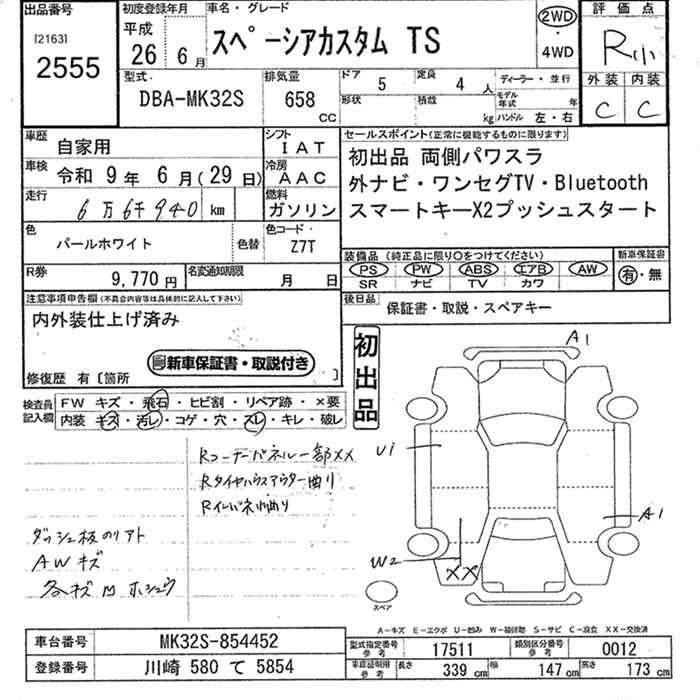 出品番号
[2163]
2555
初度登録年月
平成
26 年 6 月
車名・グレード
スペーシアカスタム TS
2WD
4WD
評価点
R小
外装 内装
C C
型式
DBA-MK32S
排気量
658 CC
ドア 5 定員 4 人
形状 積載 kg
ディーラー・並行
モデル年式 年
ハンドル 左・右
車歴 自家用
シフト IAT
車検 令和 9 年 6 月 (29 日)
冷房 AAC
走行 6万6千940 km
燃料 ガソリン
色 パールホワイト 色替
色コード Z7T
R券 9,770 円
名変通知期限 月 日
セールスポイント(正常に機能するものに限ります)
初出品 両側パワスラ
外ナビ・ワンセグTV・Bluetooth
スマートキーX2プッシュスタート
装備品 (純正品に限り○をつけてください)
PS PW ABS エアB AW
SR ナビ TV カワ
新車保証書
有・無
後日品 保証書・取説・スペアキー
注意事項申告欄(不具合内容等は具体的に記入して下さい)
内外装仕上げ済み
新車保証書・取説付き
修復歴 有〔箇所
初出品
検査員記入欄
FW キズ・飛石・ヒビ割・リペア跡・×要
内装 キズ・汚レ・コゲ・穴・スレ・キレ・破レ
Rコーナーパネル一部XX
Rタイヤハウスアウター曲り
Rインパネ小曲り
ダッシュ板のリアト
AWキズ
各キズ凹ホシュウ
A1
U1
A1
W2
XX
スペア
A-キズ E-エクボ U-凹み W-補修跡 S-サビ C-腐食 XX-交換済
車台番号 MK32S-854452
登録番号 川崎 580 て 5854
型式指定番号 参考 17511
類別区分番号 参考 0012
車庫証明用 参考 長さ 339 cm 幅 147 cm 高さ 173 cm